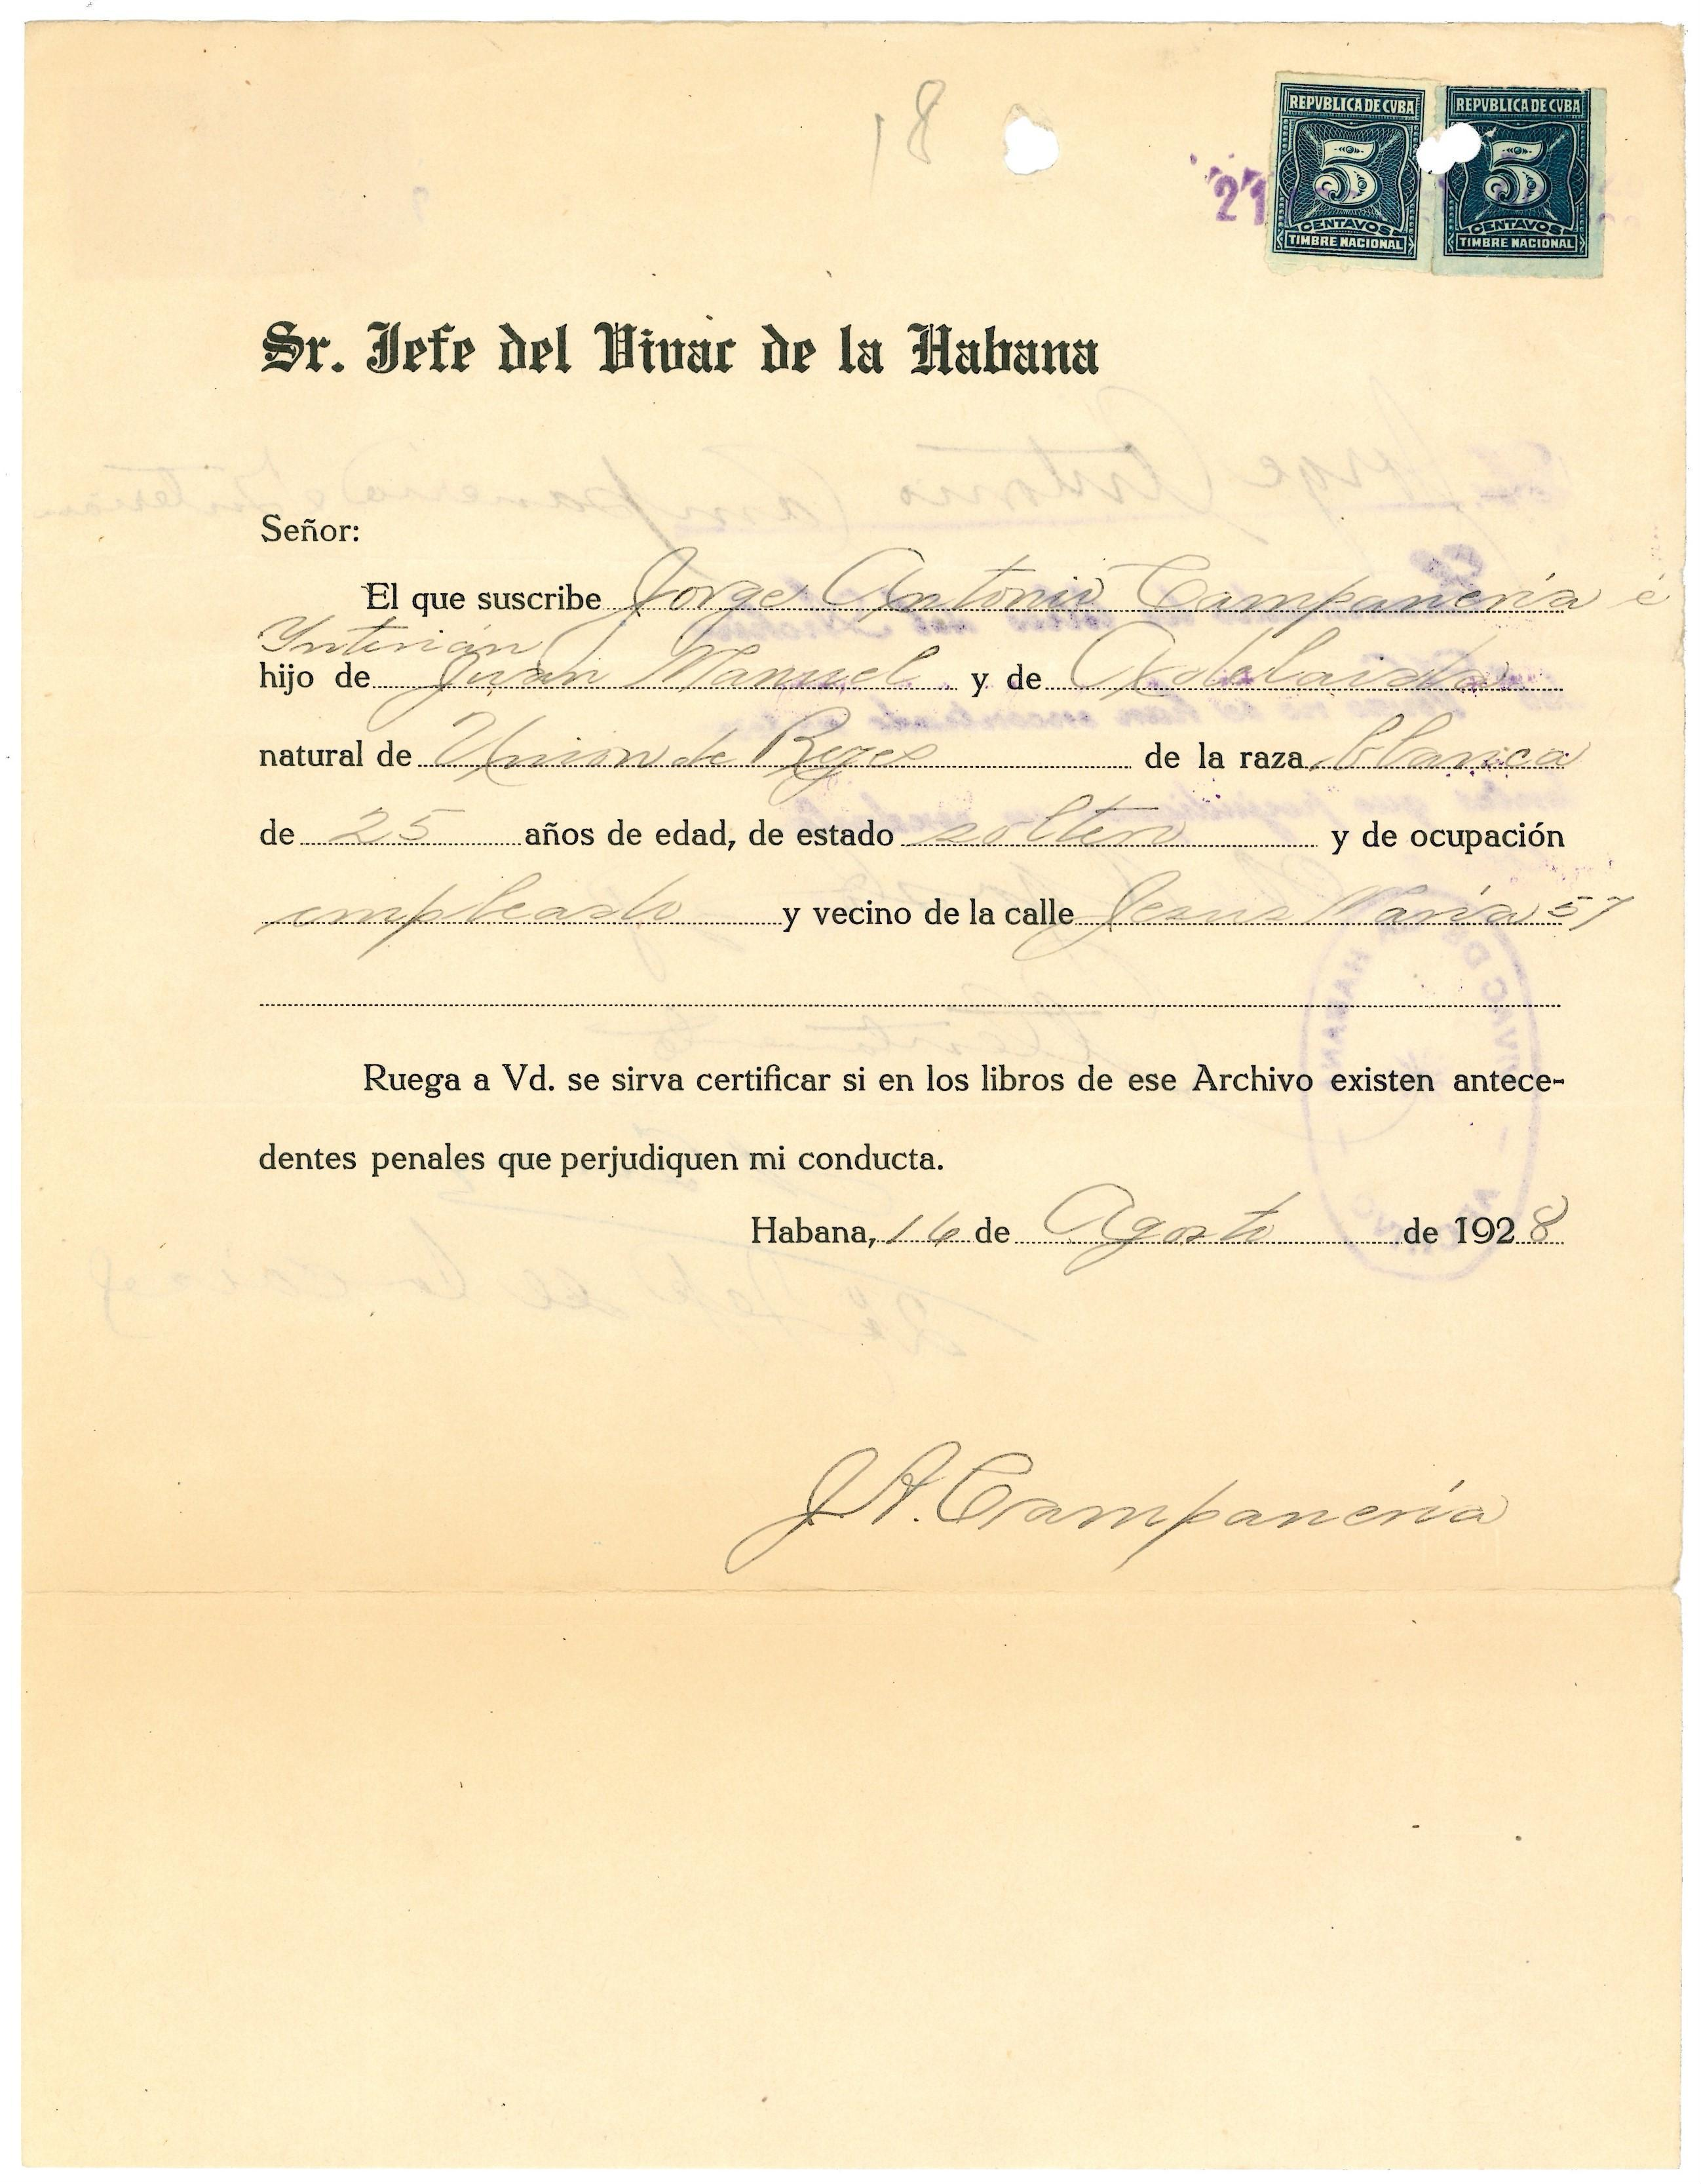 18
REPVBLICA DE CVBA REPVBLICA DE CVBA
21
5 5
CENTAVOS CENTAVOS
TIMBRE NACIONAL TIMBRE NACIONAL
Sr. Jefe del Vivac de la Habana
Señor:
El que suscribe Jorge Antonio Campanería é
Ynterián
hijo de Juan Manuel y de Adelaida
natural de Union de Reyes de la raza blanca
de 25 años de edad, de estado soltero y de ocupación
empleado y vecino de la calle Jesus María 57
Ruega a Vd. se sirva certificar si en los libros de ese Archivo existen antece-
dentes penales que perjudiquen mi conducta.
Habana, 16 de Agosto de 1928
J. A. Campanería